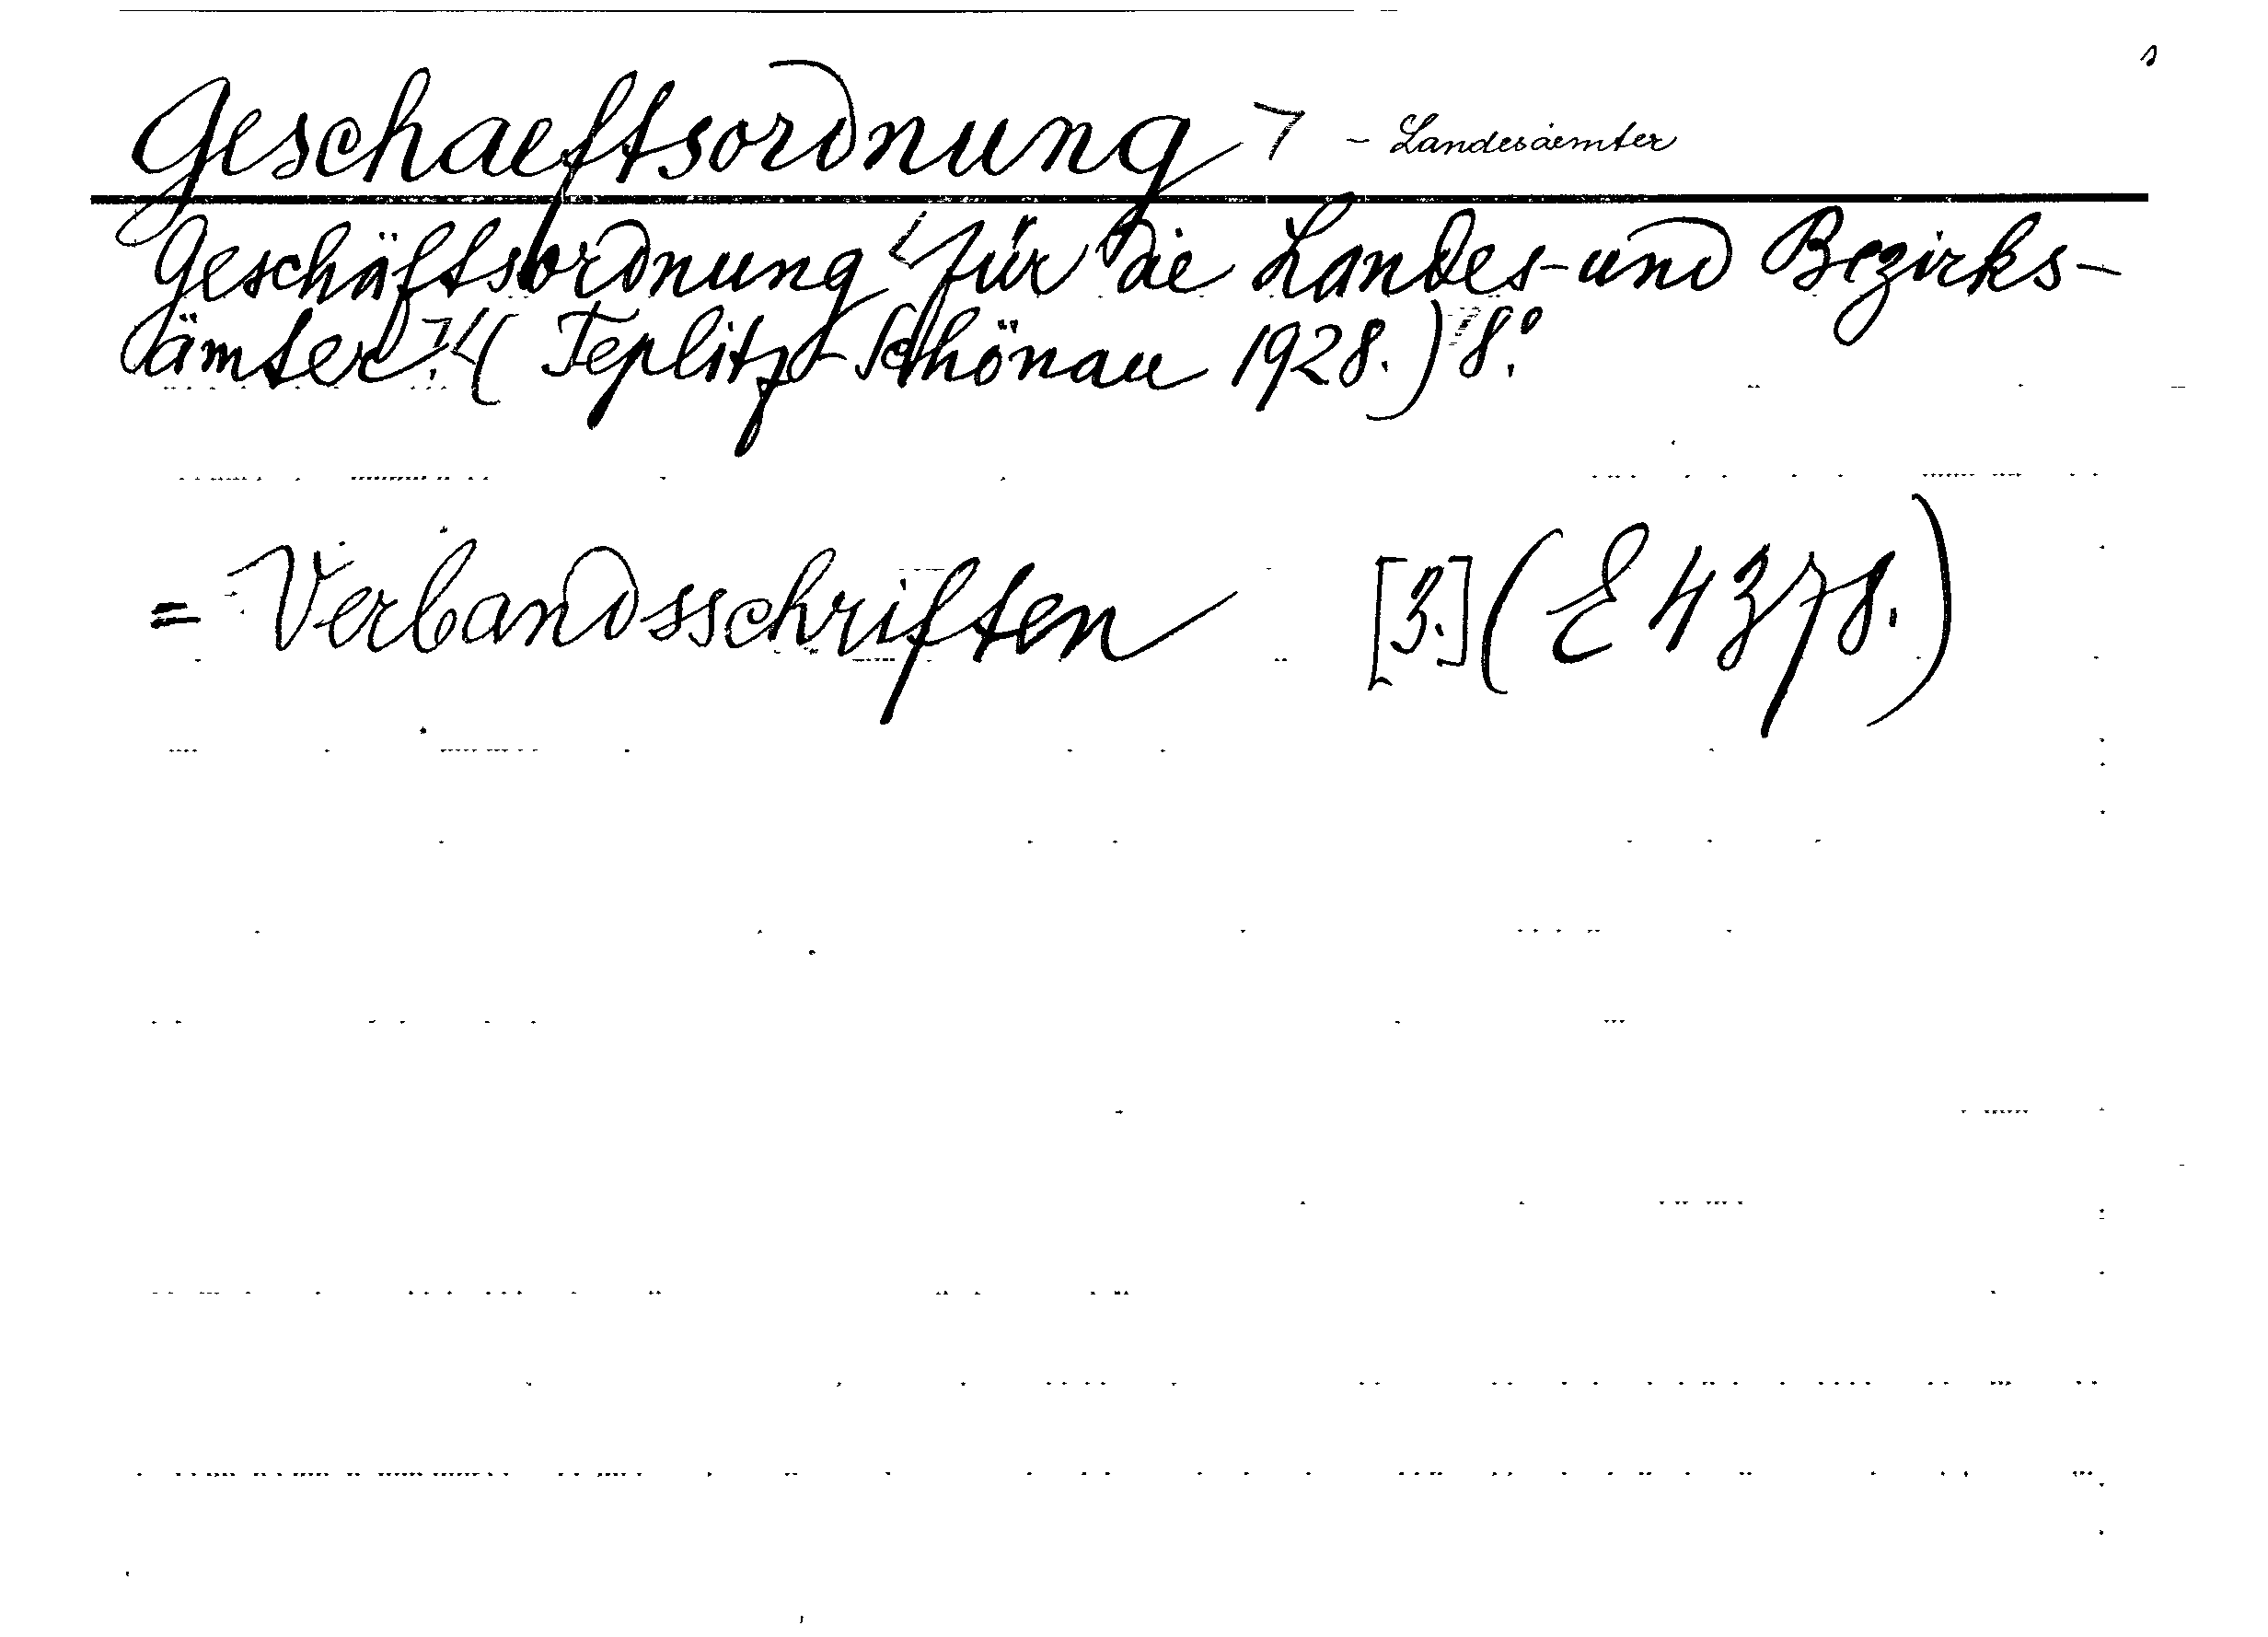 Geschaeftsordnung ⁊ - Landesaemter
Geschäftsordnung für die Landes- und Bezirks-
ämter. (Teplitz-Schönau 1928.) 8.°
= Verbandsschriften [3.] (E 4378.)